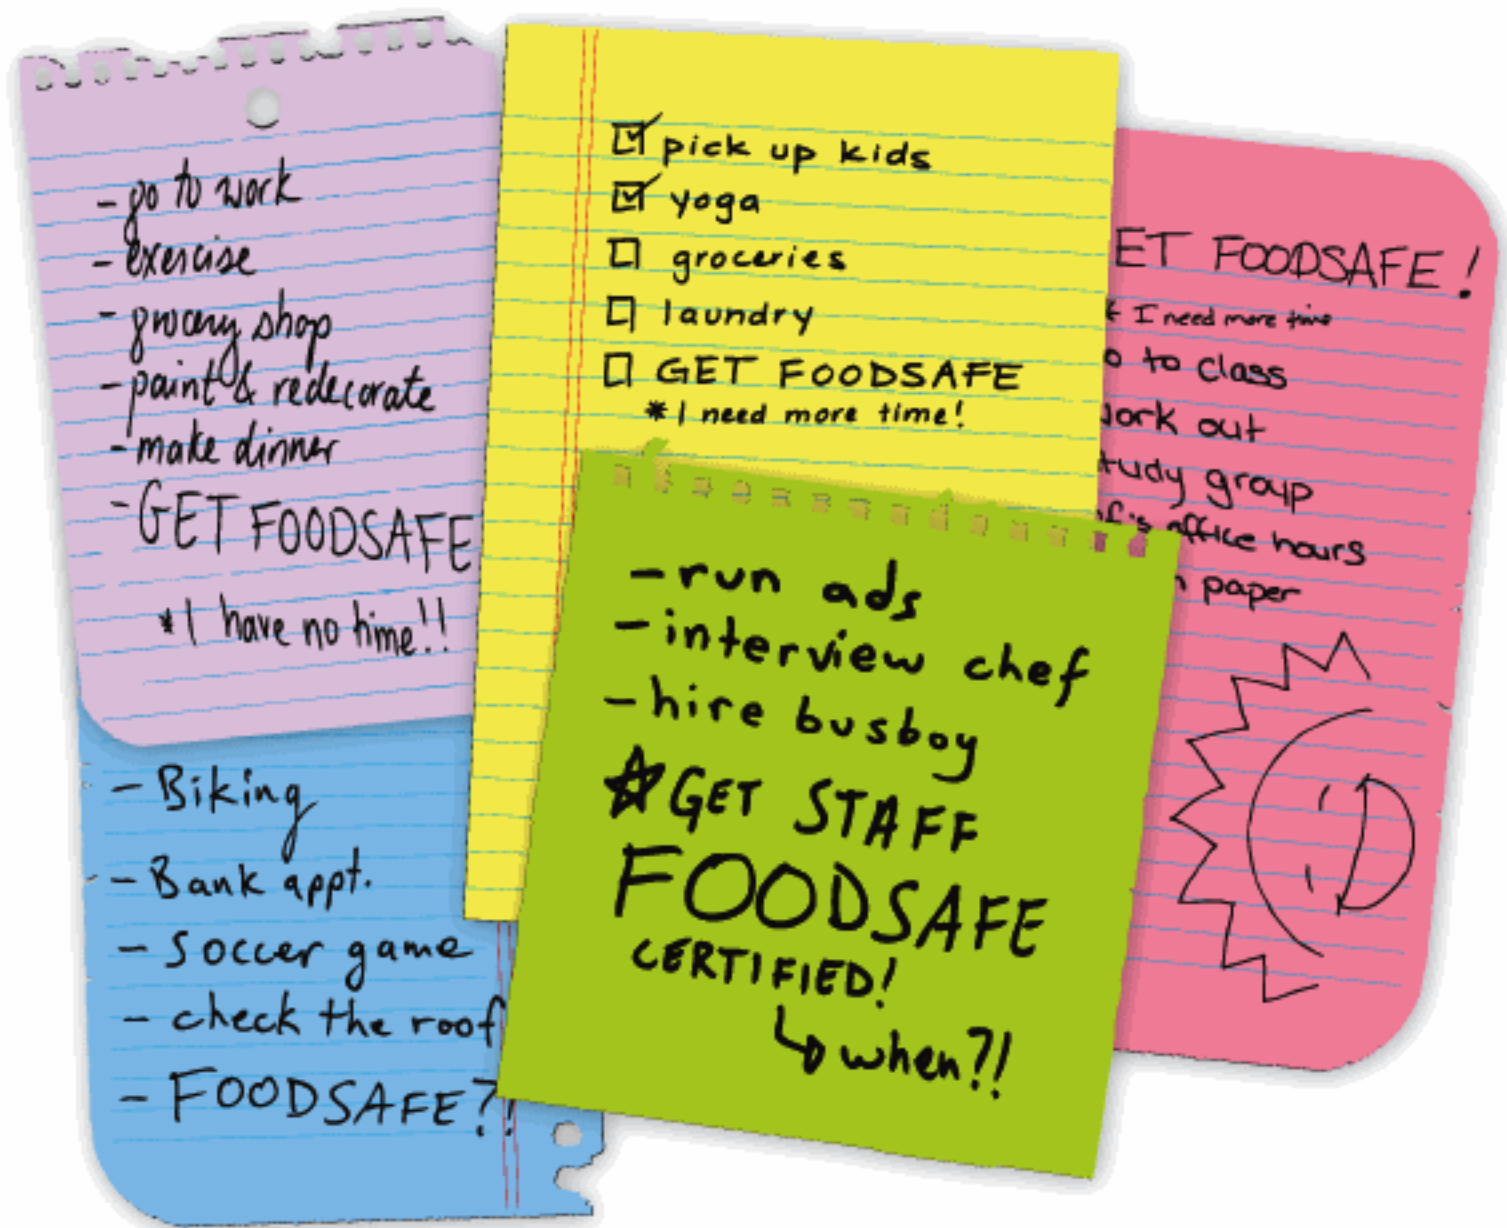 - go to work
- exercise
- grocery shop
- paint & redecorate
- make dinner
- GET FOODSAFE
* I have no time!!
pick up kids
yoga
groceries
laundry
GET FOODSAFE
* I need more time!
ET FOODSAFE!
* I need more time
o to class
work out
tudy group
f's office hours
paper
- Biking
- Bank appt.
- soccer game
- check the roof
- FOODSAFE?!
- run ads
- interview chef
- hire busboy
☆ GET STAFF
FOODSAFE
CERTIFIED!
↳ when?!